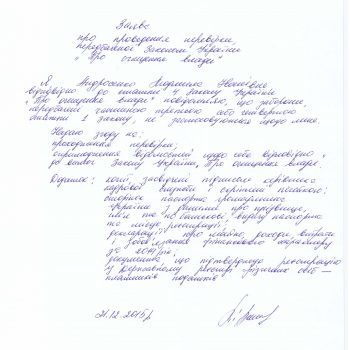 Заява
про проведення перевірки,
передбаченої Законом України
„Про очищення влади"
Я, Андросенко Людмила
відповідно до статті 4 Закону України
„Про очищення влади" повідомляю, що заборони,
передбачені частиною третьою або четвертою
статті 1 Закону, не застосовуються щодо мене.
Надаю згоду на:
проходження перевірки;
оприлюднення відомостей щодо себе відповідно
до вимог Закону України „Про очищення влади".
Додаток: копії, засвідчені підписом керівника
кадрової служби і скріплені печаткою:
сторінок паспорта громадянина
України з даними про прізвище,
ім'я та по батькові, видачу паспорта
та місце реєстрації;
декларації про майно, доходи, витрати
і зобов'язання фінансового характеру
за 2014 рік;
документа, що підтверджує реєстрацію
у Державному реєстрі фізичних осіб –
платників податків
21.12.2015р.